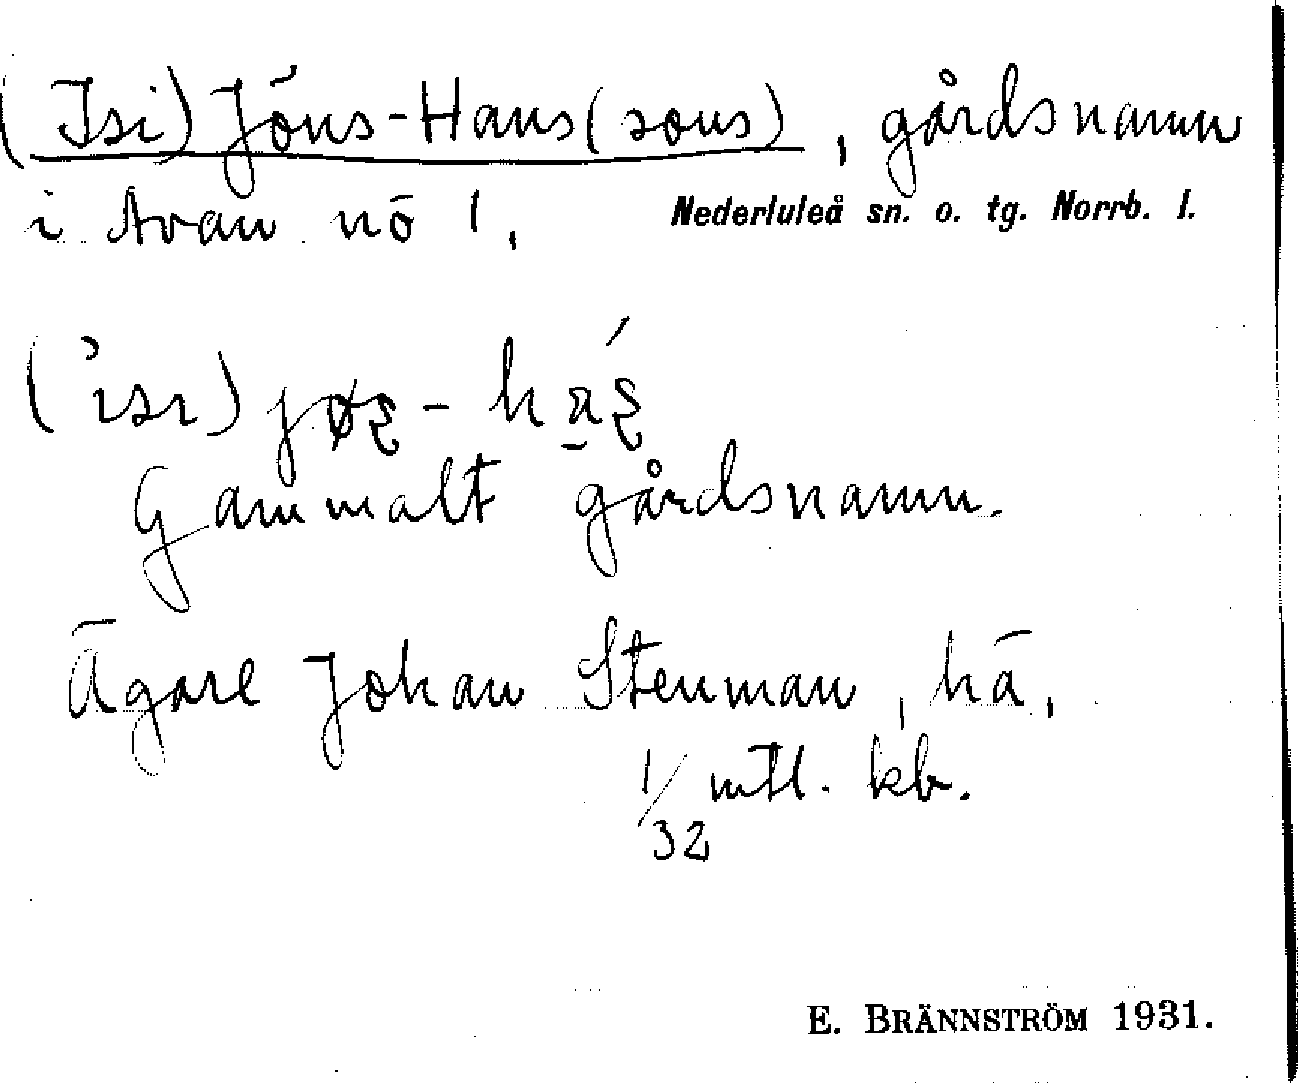 (Isi) Jöns-Hans(sons), gårdsnamn
i Avan nö 1, Nederluleå sn. o. tg. Norrb. l.
Gammalt gårdsnamn.
Ägare Johan Stenman, hä,
1/32 mtl. kb.
E. BRÄNNSTRÖM 1931.